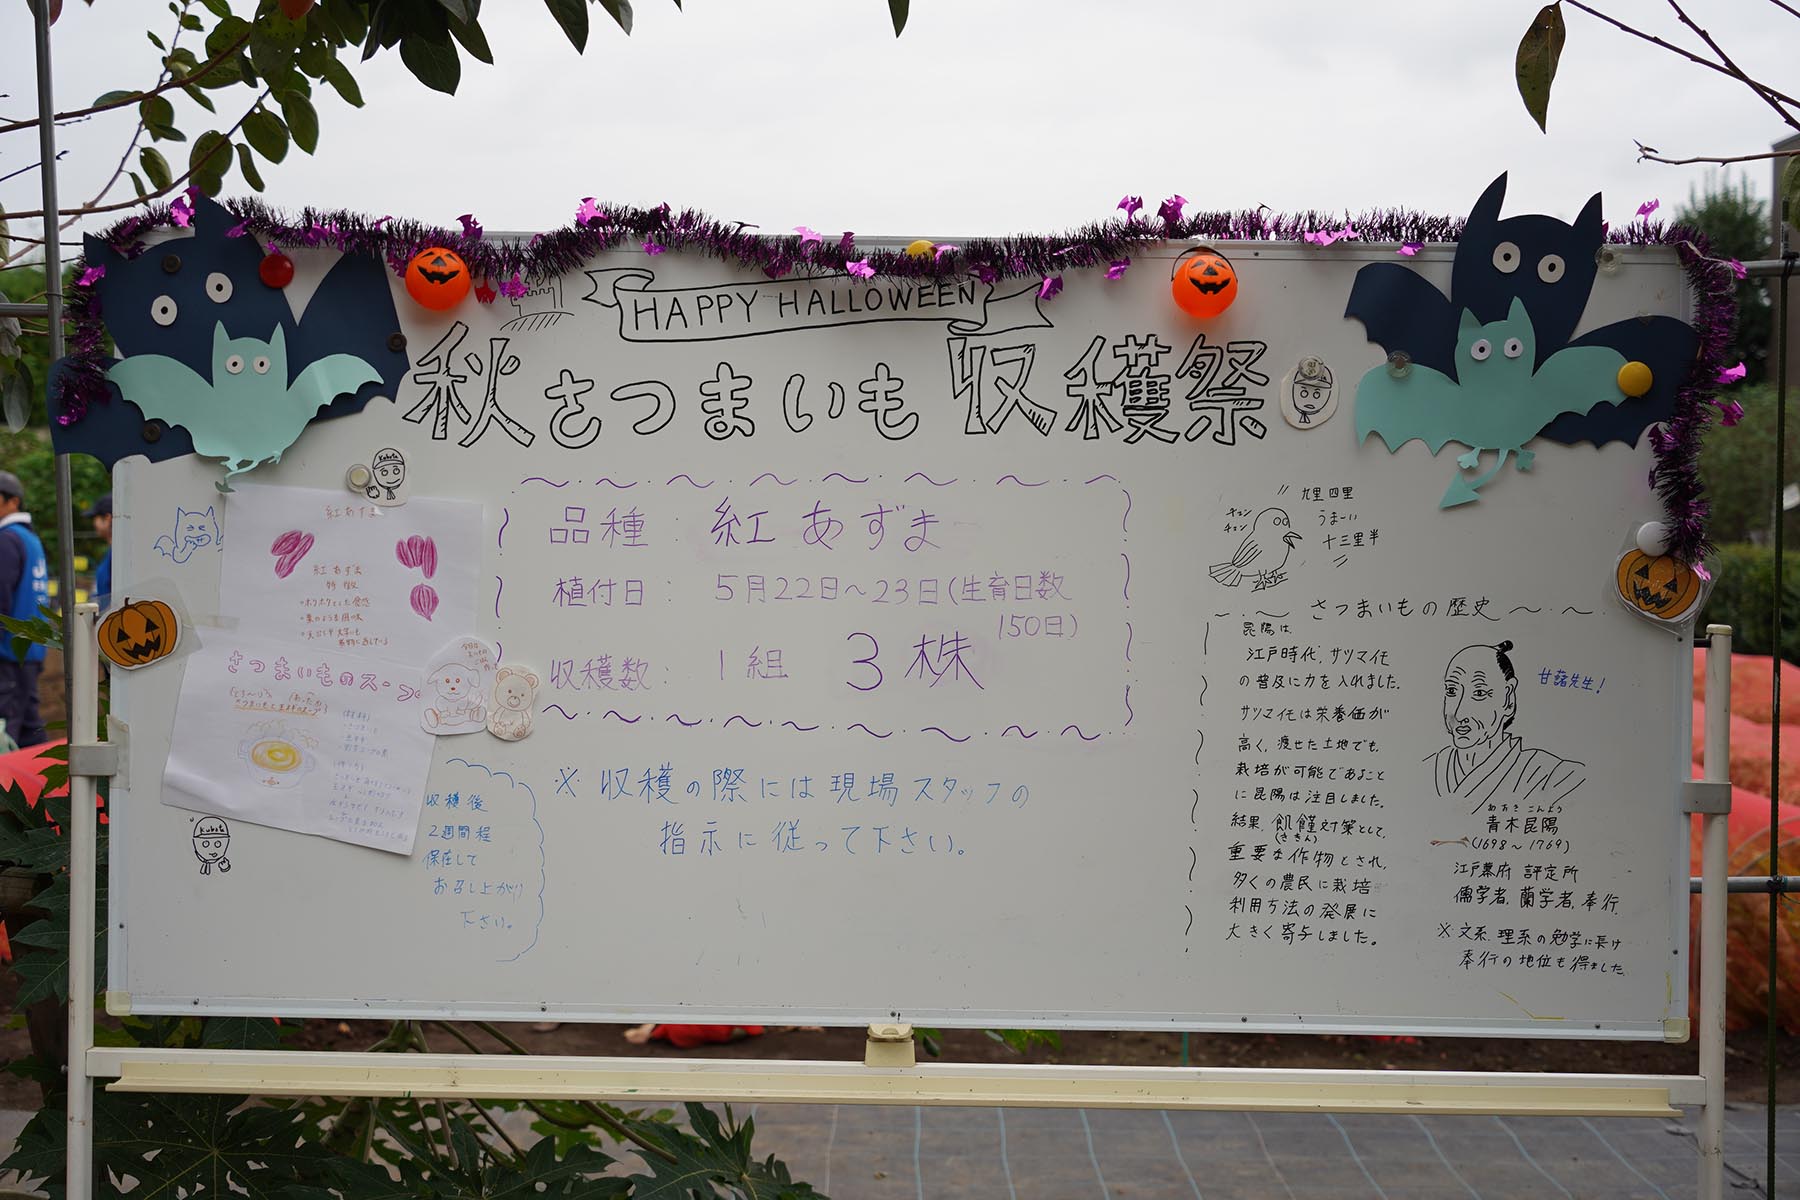 HAPPY HALLOWEEN
秋さつまいも収穫祭
品種：紅あずま
植付日：5月22日～23日(生育日数
150日)
収穫数：1組 3株
※収穫の際には現場スタッフの
指示に従って下さい。
Kubota
紅あずま
紅あずま
特徴
・ホクホクとした食感
・栗のような甘味
さつまいものスープ
(材料)
(作り方)
Kubota
収穫後
2週間程
保存して
お召し上がり
下さい。
チュン
チュン
九里四里
うまーい
十三里半
さつまいもの歴史
昆陽は、
江戸時代、サツマイモ
の普及に力を入れました。
サツマイモは栄養価が
高く、痩せた土地でも、
栽培が可能であること
に昆陽は注目しました。
結果、飢饉対策として、
(ききん)
重要な作物とされ、
多くの農民に栽培
利用方法の発展に
大きく寄与しました。
甘藷先生！
あおき こんよう
青木昆陽
(1698～1769)
江戸幕府 評定所
儒学者、蘭学者、奉行、
※文系、理系の勉学に長け
奉行の地位も得ました。